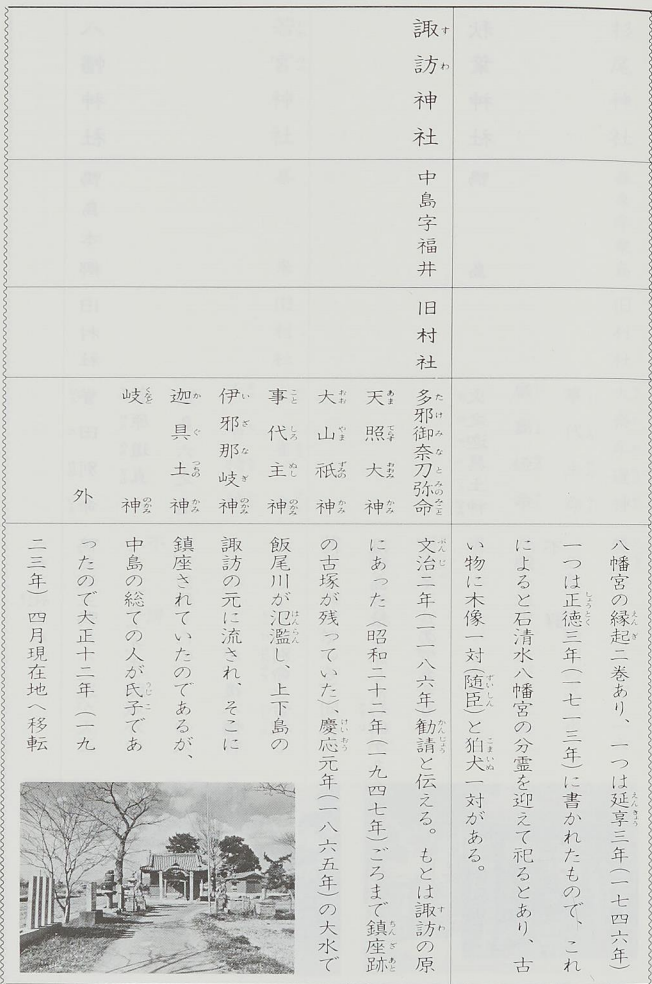 八幡宮の縁起二巻あり、一つは延享三年(一七四六年)
一つは正徳三年(一七一三年)に書かれたもので、これ
によると石清水八幡宮の分霊を迎えて祀るとあり、古
い物に木像一対(随臣)と狛犬一対がある。
諏訪神社
中島字福井
旧村社
多邪御奈刀弥命
天照大神
大山祇神
事代主神
伊邪那岐神
迦具土神
岐神
外
文治二年(一一八六年)勧請と伝える。もとは諏訪の原
にあった〈昭和二十二年(一九四七年)ごろまで鎮座跡
の古塚が残っていた〉、慶応元年(一八六五年)の大水で
飯尾川が氾濫し、上下島の
諏訪の元に流され、そこに
鎮座されていたのであるが、
中島の総ての人が氏子であ
ったので大正十二年(一九
二三年)四月現在地へ移転